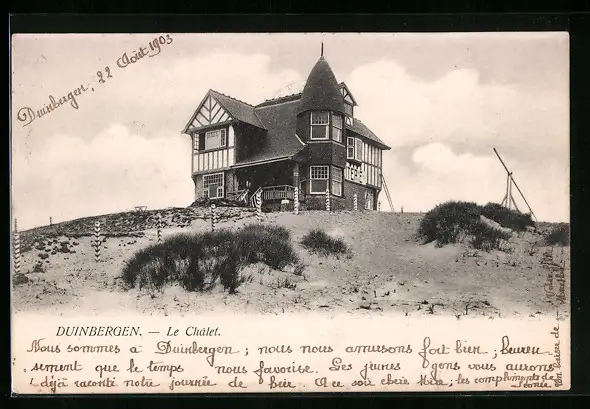 Duinbergen, 22 Août 1903
DUINBERGEN. — Le Châlet.
Nous sommes à Duinbergen ; nous nous amusons fort bien ; heureu-
sement que le temps nous favorise. Les jeunes gens vous auront
déjà raconté notre journée de hier A ce soir chère ; les compliments de
Un baiser de